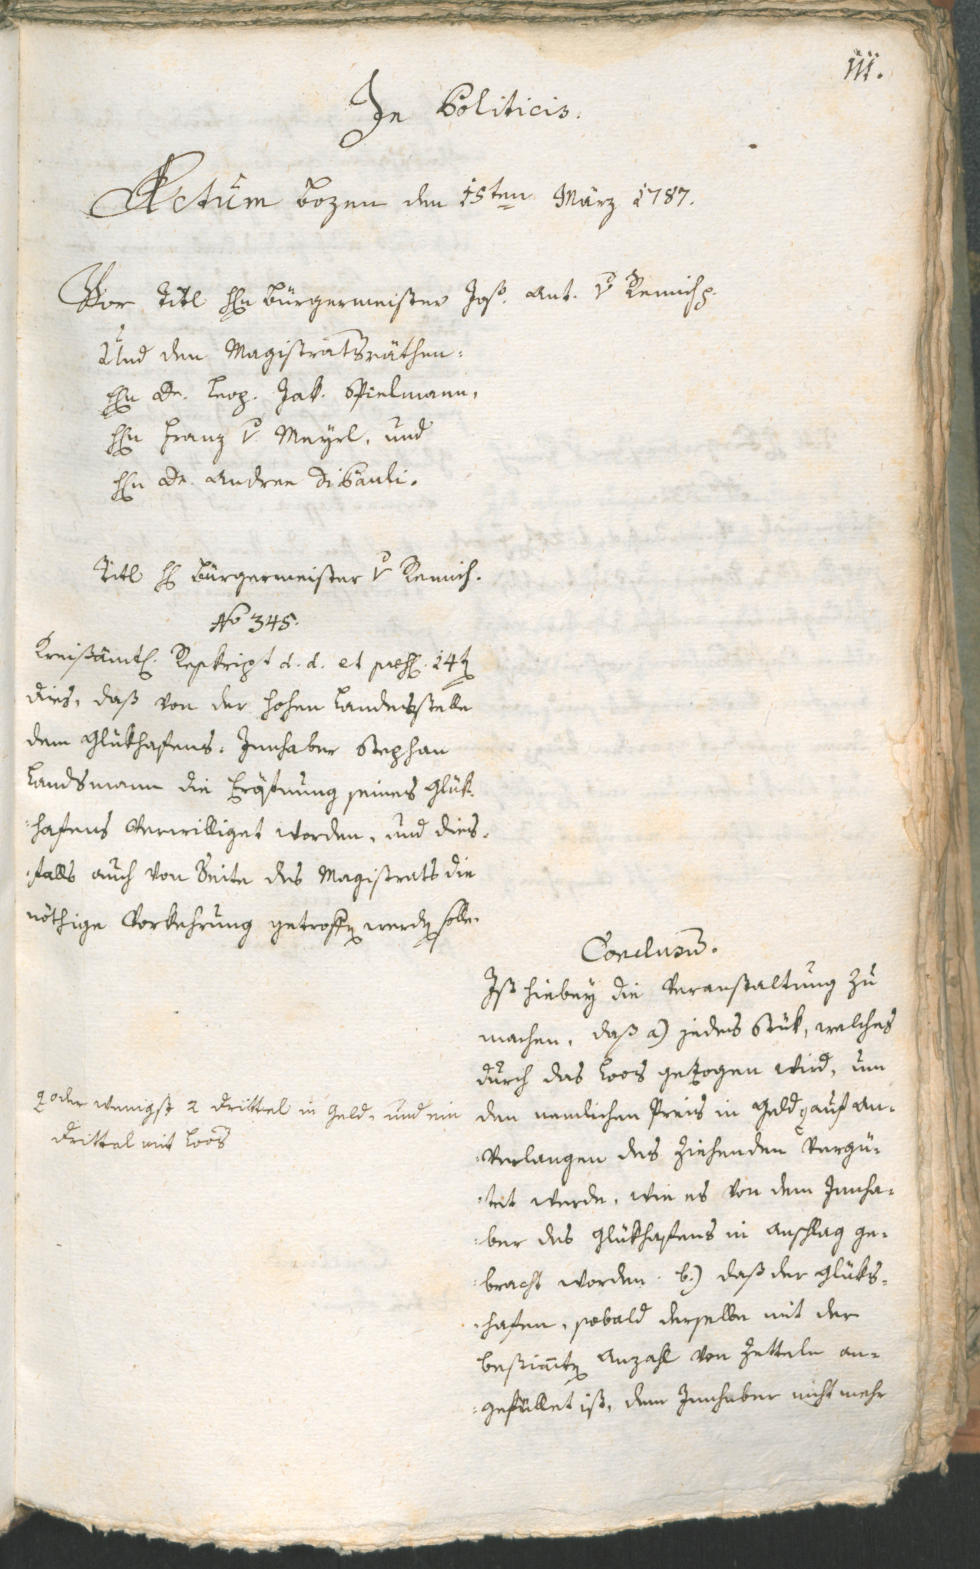 111.
In Politicis.
Actum Bozen den 15ten März 1787.
Vor Titl Hn Bürgermeister Jos. Ant. v Remich
Und den Magistratsräthen:
Hn Dr. Leop. Jak. Spielmann,
Hn Franz v Mayrl, und
Hn Dr. Andree Dipauli.
Titl H Bürgermeister v Remich.
No 345.
Kreißämtl. Reskript d. d. et præs. 14t
dies, daß von der hohen Landesstelle
dem Glükhafens-Innhaber Stephan
Landsmann die Eröfnung seines Glük-
hafens verwilliget worden, und dies-
falls auch von Seite des Magistrats die
nöthige Vorkehrung getroffen werden solle.
Conclusum.
Ist hiebey die Veranstaltung zu
machen, daß a) jedes Stük, welches
durch das Loos gezogen wird, um
den nemlichen Preis in Geld auf An-
verlangen des Ziehenden vergü-
tet werde, wie es von dem Innha-
ber des Glükhafens in Anschlag ge-
bracht worden. b.) daß der Glüks-
hafen, sobald derselbe mit der
bestimmten Anzahl von Zetteln an-
gefüllet ist, dem Innhaber nicht mehr
oder wenigst 2 drittel in Geld, und ein
drittel mit Loos